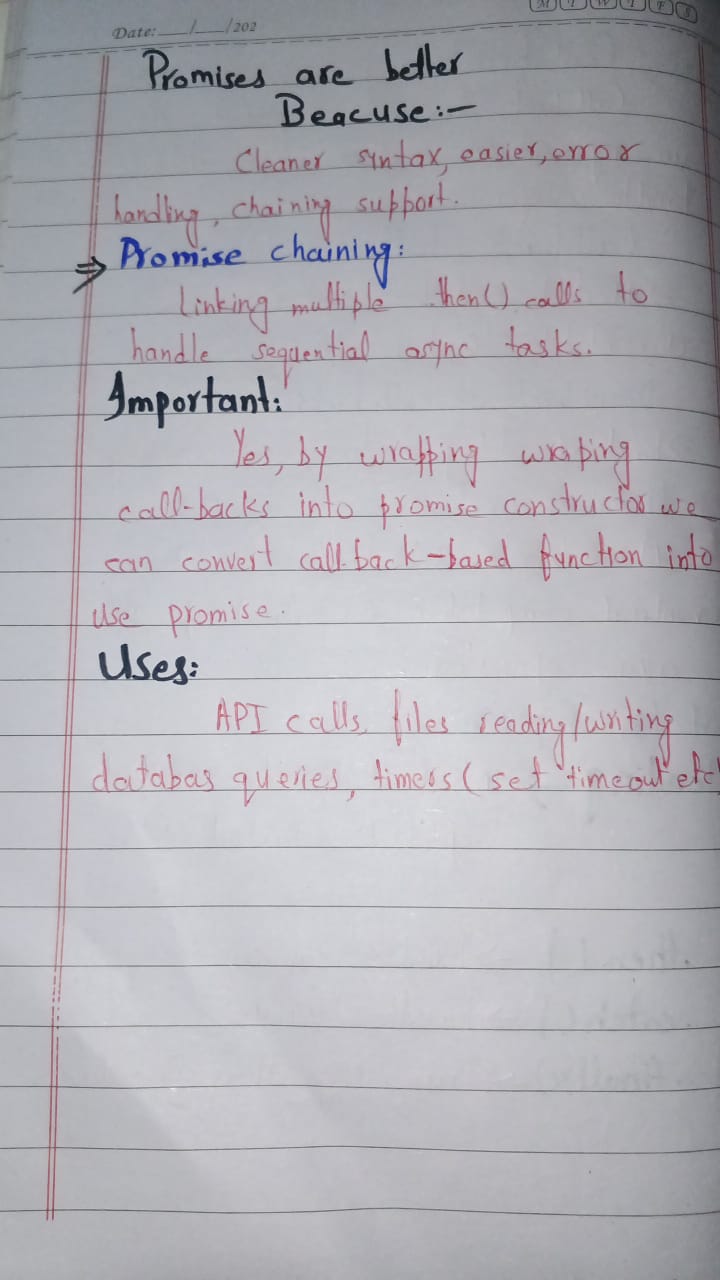 Date: __/__/202
M T W T F S
Promises are better
Beacuse:-
Cleaner syntax, easier, error
handling, chaining support.
⇒ Promise chaining:
Linking multiple .then() calls to
handle sequential async tasks.
Important:
Yes, by wrapping wraping
call-backs into promise constructor we
can convert call back-based function into
use promise.
Uses:
API calls, files reading/writing
databas queries, timers (set timeout etc)